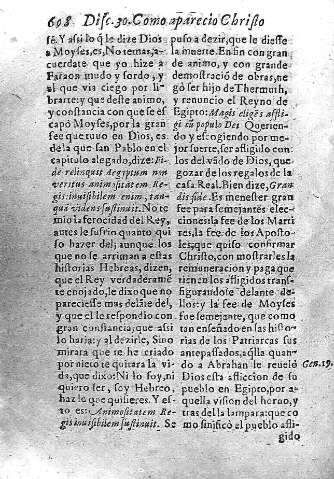 608 Disc. 30. Como aparecio Christo
fe. Y assi lo q̃ le dize Dios
a Moyses, es, No temas, a-
cuerdate que yo hize a
Faraon mudo y sordo, y
al que via ciego por li-
brarte: y que deste animo,
y constancia con que se es
capò Moyses, por la gran
fee que tuuo en Dios, es
de la que san Pablo en el
capitulo alegado, dize: Fi-
de relinquit Aegyptum non
veritus animositatem Re-
gis: inuisibilem enim, tan-
quã videns sustinuit. No te
mio la ferocidad del Rey,
antes le sufrio quanto qui
so hazer del; aunque los
que no se arriman a estas
historias Hebreas, dizen,
que el Rey verdaderamẽ
te enojado, le dixo que no
pareciesse mas delãte del,
y que el le respondio con
gran constancia, que assi
lo haria: y al dezirle, Sino
mirara que se he criado
por nieto te quitara la vi-
da, que dixo: Ni lo soy, ni
quiero ser, soy Hebreo,
haz lo que quisieres. Y es-
to es: Animositatem Re-
gis inuisibilem sustinuit. Se
puso a dezir, que le diesse
la muerte. En fin con gran
de animo, y con grande
demostraciõ de obras, ne-
gò ser hijo de Thermuth,
y renuncio el Reyno de
Egipto: Magis eligẽs affli-
gi cũ populo Dei. Querien-
do y escogiendo por me-
jor suerte, ser afligido con
los del vãdo de Dios, que
gozar de los regalos de la
casa Real. Bien dize, Gran-
di fide. Es menester gran
fee para semejantes elec-
ciones: la fee de los Marti-
res, la fee de los Aposto-
les, que quiso confirmar
Christo, con mostrarles la
remuneracion y paga que
tienen los afligidos transf-
figurandose delante de-
llos: y la fee de Moyses
fue semejante, que como
tan enseñado en las histo-
rias de los Patriarcas sus
antepassados, aq̃lla quan-
do a Abrahan le reuelò
Dios esta afliccion de su
pueblo en Egipto, por a-
quella vision del horno, y
tras del la lampara: que co
mo sinificò el pueblo afli-
gido
Gen. 19.